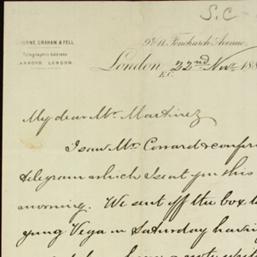 S.C
GRAHAM & FELL
Telegraphic Address
LONDON.
9 & 11, Fenchurch Avenue,
London, 22nd Nov. 188
E.C.
My dear Mr. Martinez
I saw Mr Conrard &
telegram which I sent you this
morning. We sent off the box to
Vega on Saturday